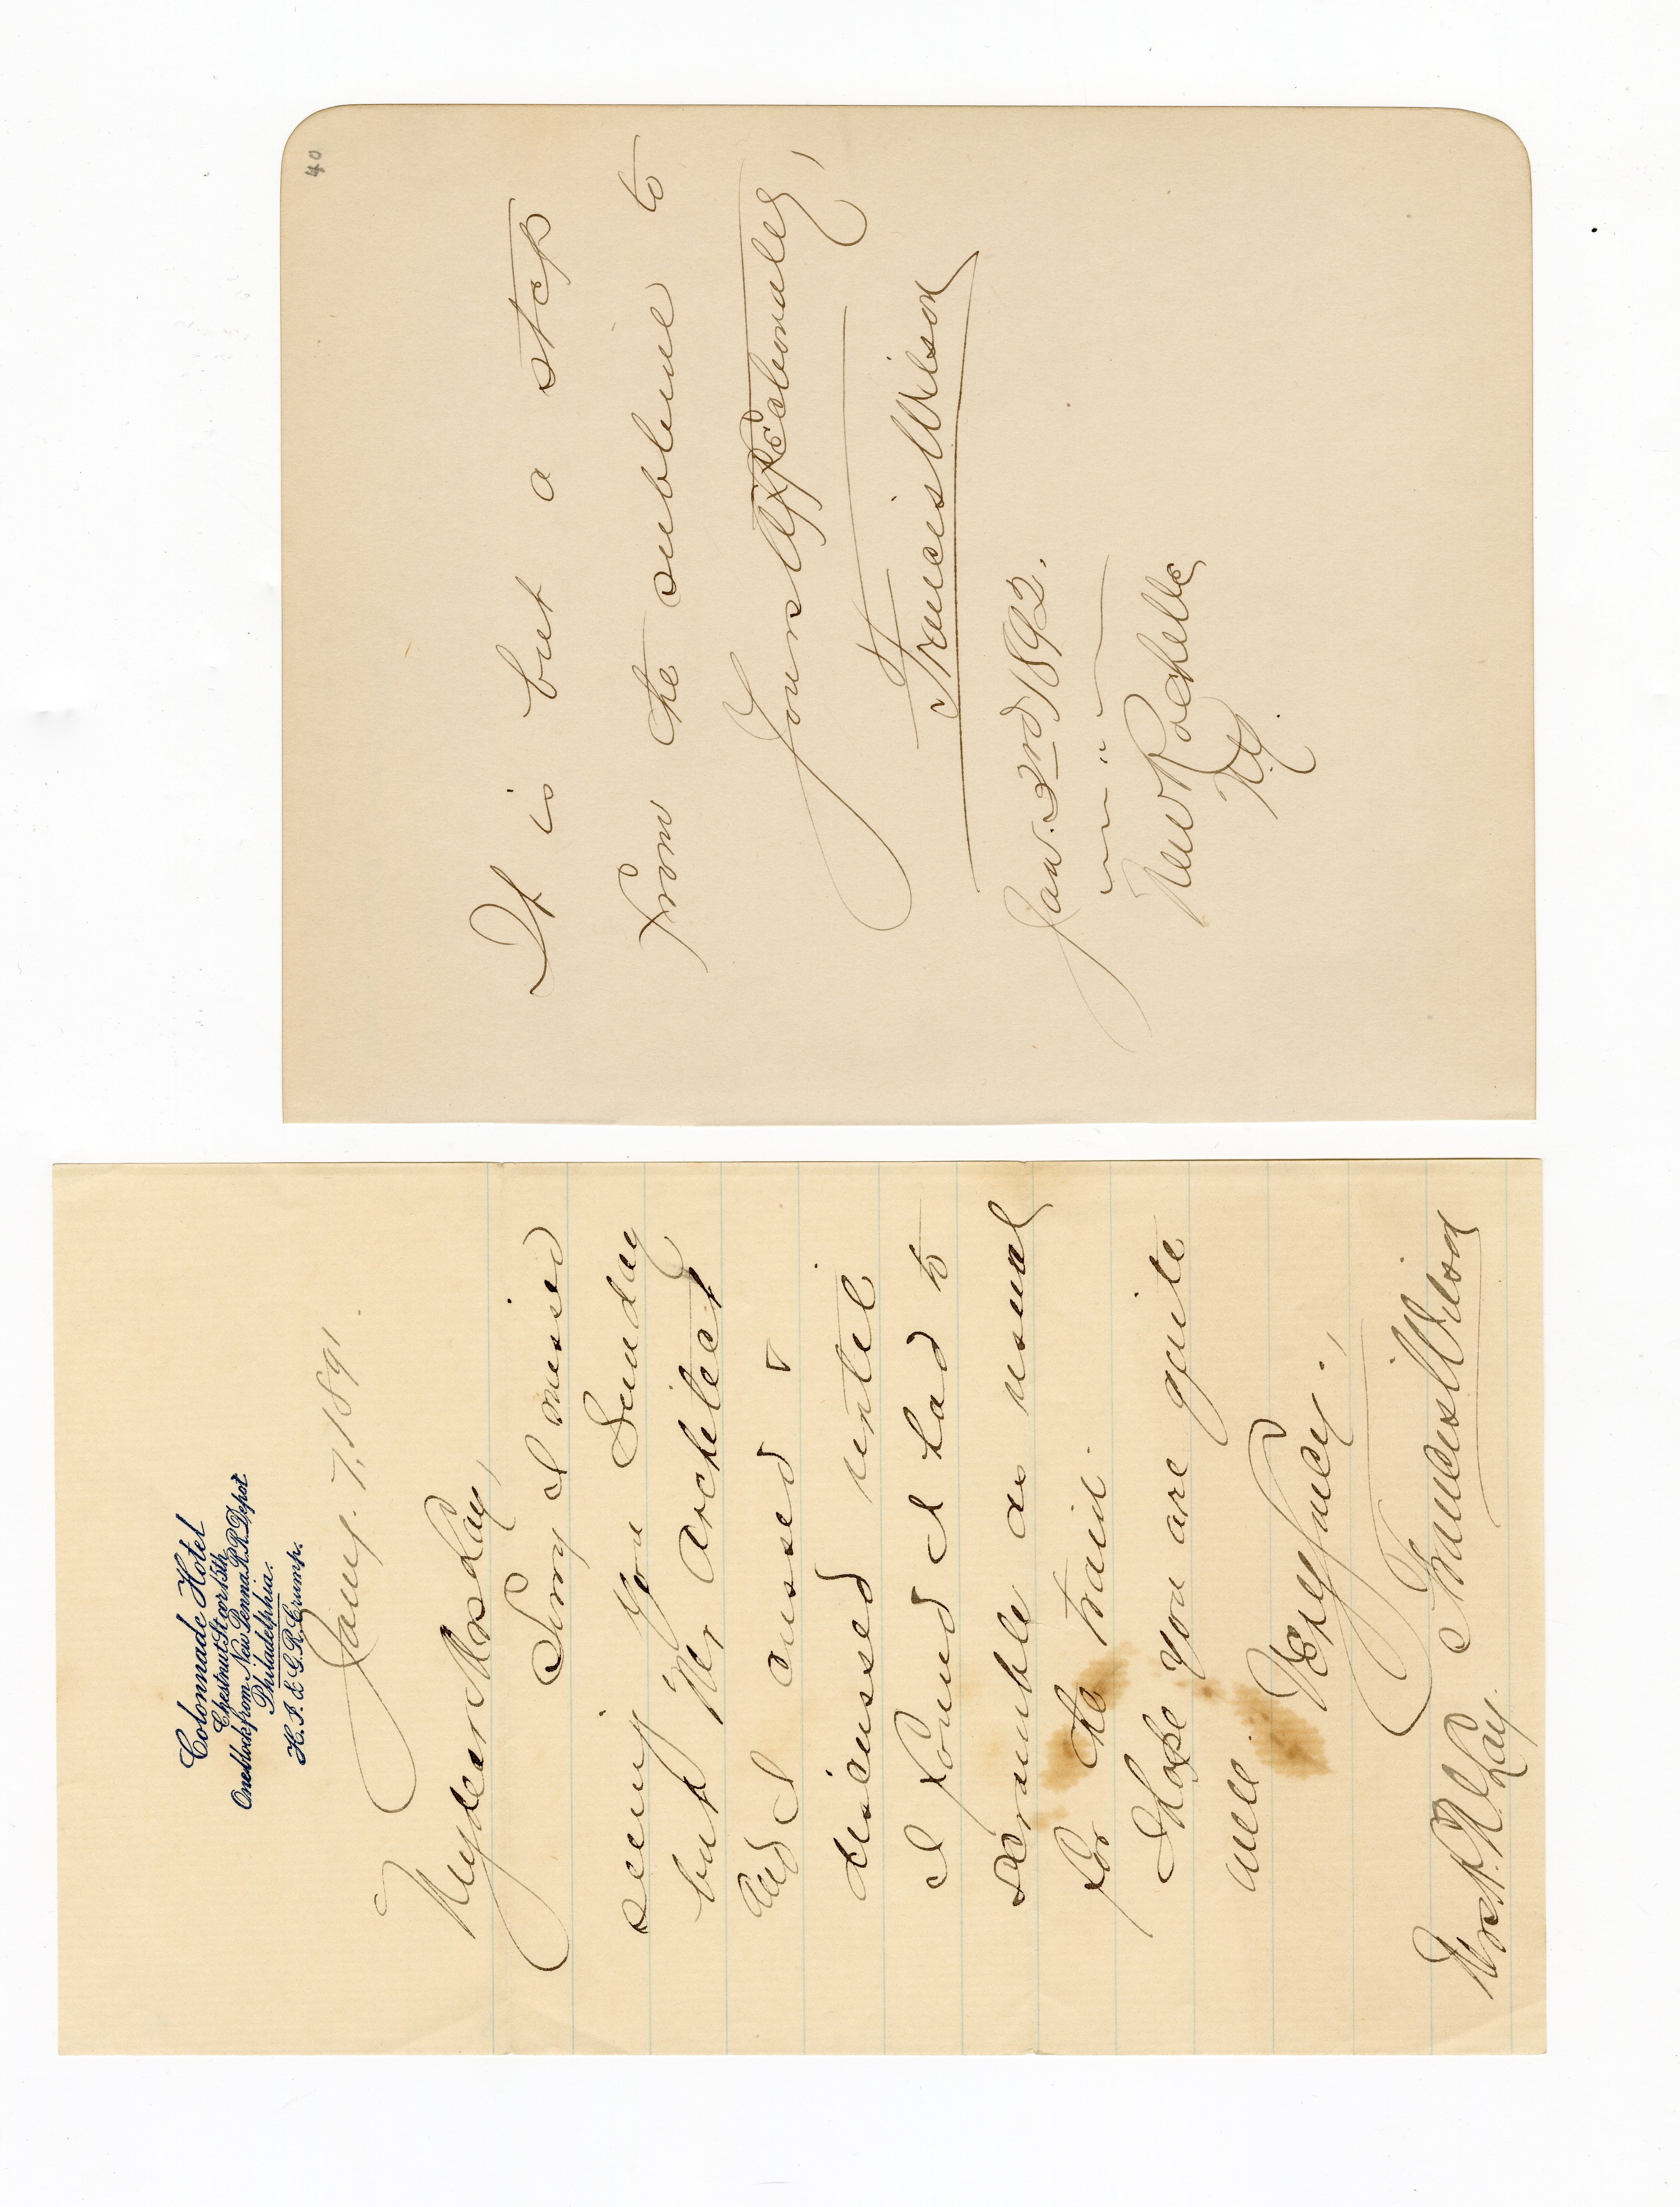 Colonnade Hotel
Chestnut St. cor 15th
One block from New Penna R.R. Depot
Philadelphia.
H. J. & G. R. Crump.
Jany. 7, 1891.
My dear Mrs Lay,
Sorry I missed
seeing you Sunday
but Mr architect
and I cussed &
discussed until
I found I had to
scramble as usual
for the train.
I hope you are quite
well.
Very sincy.,
Francis Wilson
Lay.
40
It is but a step
from the sublime to
Yours Affectionately,
Francis Wilson
Jan. 3rd 1892.
New Rochelle
N.Y.